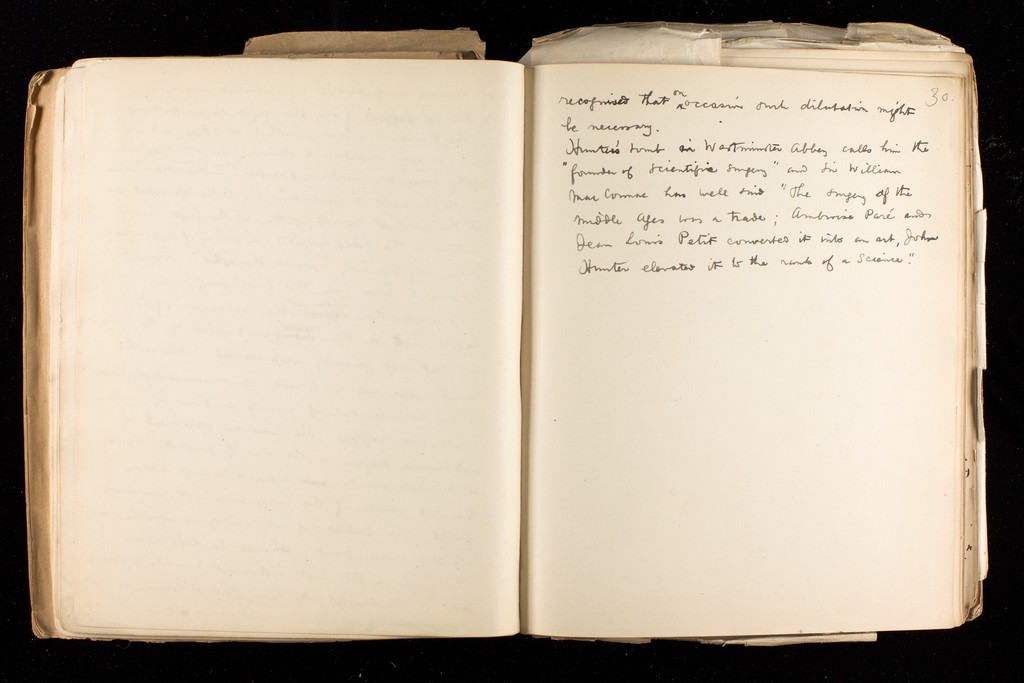 30.
recognised that on occasion such dilatation might
be necessary.
Hunter's tomb in Westminster Abbey calls him the
"founder of scientific surgery" and Sir William
Mac Cormac has well said "The surgery of the
Middle Ages was a trade; Ambroise Paré and
Jean Louis Petit converted it into an art, John
Hunter elevated it to the rank of a Science".